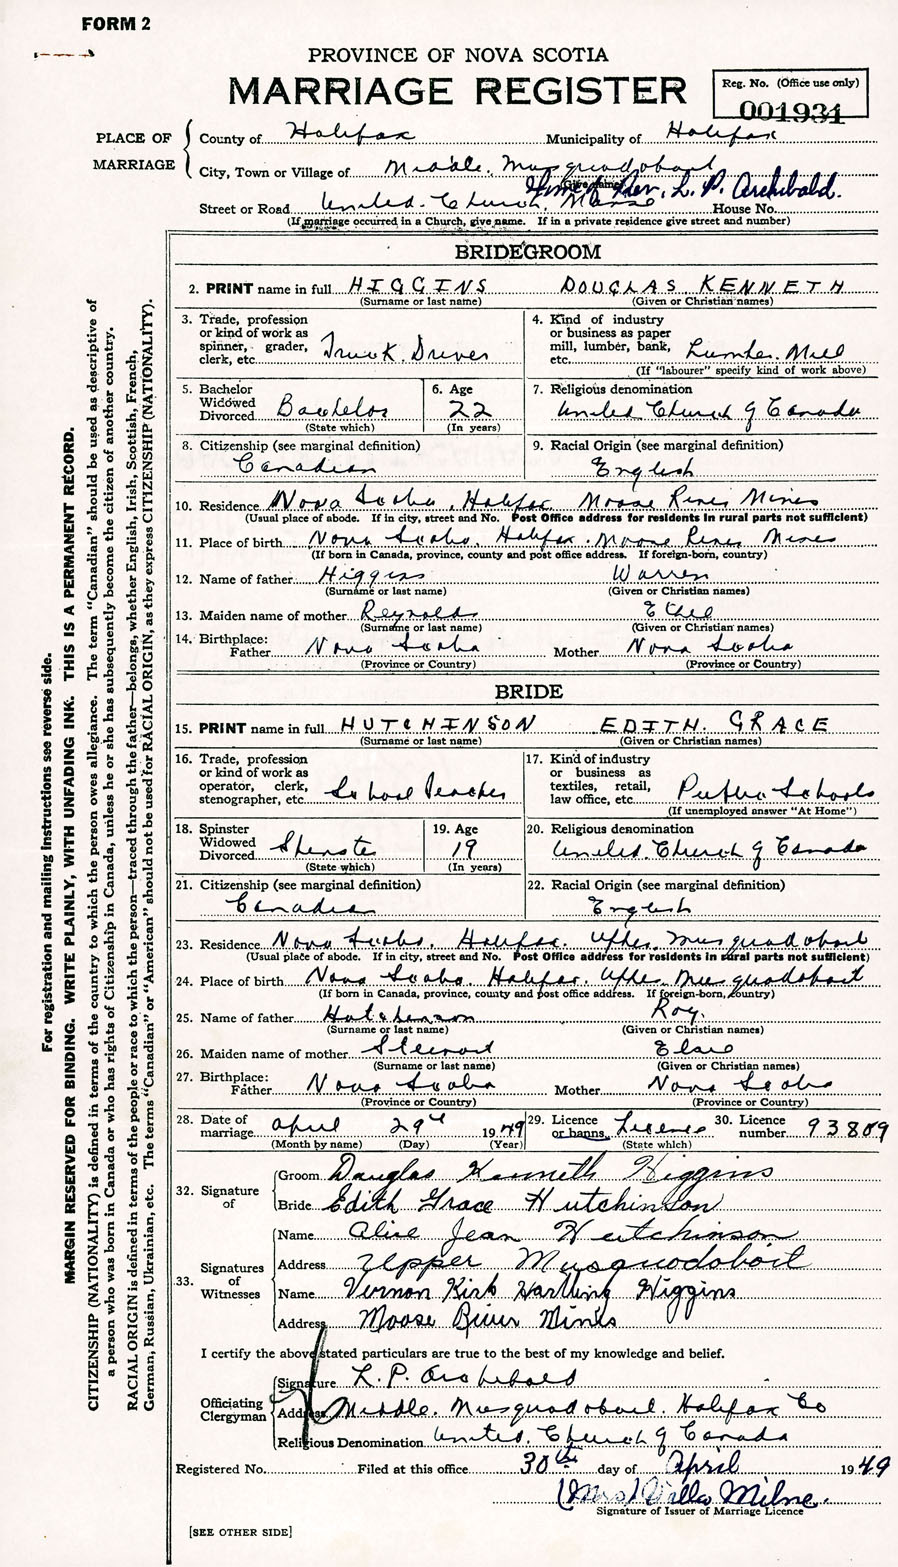 FORM 2
PROVINCE OF NOVA SCOTIA
MARRIAGE REGISTER
Reg. No. (Office use only)
001934
PLACE OF MARRIAGE
County of Halifax Municipality of Halifax
City, Town or Village of Middle Musquodoboit
(Give name) Home of Rev. L. P. Archibald.
Street or Road United Church Manse House No.
(If marriage occurred in a Church, give name. If in a private residence give street and number)
BRIDEGROOM
2. PRINT name in full HIGGINS DOUGLAS KENNETH
(Surname or last name) (Given or Christian names)
3. Trade, profession or kind of work as spinner, grader, clerk, etc. Truck Driver
4. Kind of industry or business as paper mill, lumber, bank, etc. Lumber Mill
(If "labourer" specify kind of work above)
5. Bachelor Widowed Divorced Bachelor
(State which)
6. Age 22
(In years)
7. Religious denomination
United Church of Canada
8. Citizenship (see marginal definition)
Canadian
9. Racial Origin (see marginal definition)
English
10. Residence Nova Scotia, Halifax Moose River Mines
(Usual place of abode. If in city, street and No. Post Office address for residents in rural parts not sufficient)
11. Place of birth Nova Scotia, Halifax. Moose River Mines
(If born in Canada, province, county and post office address. If foreign-born, country)
12. Name of father Higgins Warren
(Surname or last name) (Given or Christian names)
13. Maiden name of mother Reynolds Ethel
(Surname or last name) (Given or Christian names)
14. Birthplace:
Father Nova Scotia Mother Nova Scotia
(Province or Country) (Province or Country)
BRIDE
15. PRINT name in full HUTCHINSON EDITH. GRACE
(Surname or last name) (Given or Christian names)
16. Trade, profession or kind of work as operator, clerk, stenographer, etc. School Teacher
17. Kind of industry or business as textiles, retail, law office, etc. Public Schools
(If unemployed answer "At Home")
18. Spinster Widowed Divorced Spinster
(State which)
19. Age 19
(In years)
20. Religious denomination
United Church of Canada
21. Citizenship (see marginal definition)
Canadian
22. Racial Origin (see marginal definition)
English
23. Residence Nova Scotia, Halifax. Upper Musquodoboit
(Usual place of abode. If in city, street and No. Post Office address for residents in rural parts not sufficient)
24. Place of birth Nova Scotia, Halifax, Upper Musquodoboit
(If born in Canada, province, county and post office address. If foreign-born, country)
25. Name of father Hutchinson Roy.
(Surname or last name) (Given or Christian names)
26. Maiden name of mother Stewart
(Surname or last name) (Given or Christian names)
27. Birthplace:
Father Nova Scotia Mother Nova Scotia
(Province or Country) (Province or Country)
28. Date of marriage April 29th 1949
(Month by name) (Day) (Year)
29. Licence or banns Licence
(State which)
30. Licence number 93809
32. Signature of
Groom Douglas Kenneth Higgins
Bride Edith Grace Hutchinson
33. Signatures of Witnesses
Name Alice Jean Hutchinson
Address Upper Musquodoboit
Name Vernon Kirk Hartling Higgins
Address Moose River Mines
I certify the above stated particulars are true to the best of my knowledge and belief.
Officiating Clergyman
Signature L. P. Archibald
Address Middle Musquodoboit. Halifax Co
Religious Denomination United Church of Canada
Registered No. Filed at this office 30th day of April 1949
(Mrs) Milne.
Signature of Issuer of Marriage Licence
[SEE OTHER SIDE]
For registration and mailing instructions see reverse side.
MARGIN RESERVED FOR BINDING. WRITE PLAINLY, WITH UNFADING INK. THIS IS A PERMANENT RECORD.
CITIZENSHIP (NATIONALITY) is defined in terms of the country to which the person owes allegiance. The term "Canadian" should be used as descriptive of
a person who was born in Canada or who has rights of Citizenship in Canada, unless he or she has subsequently become the citizen of another country.
RACIAL ORIGIN is defined in terms of the people or race to which the person—traced through the father—belongs, whether English, Irish, Scottish, French,
German, Russian, Ukrainian, etc. The terms "Canadian" or "American" should not be used for RACIAL ORIGIN, as they express CITIZENSHIP (NATIONALITY).